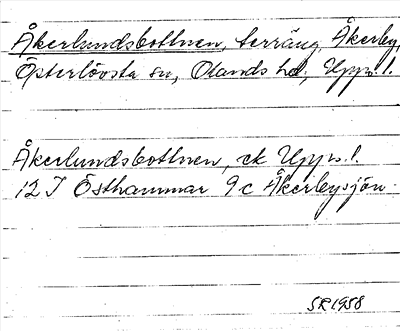 Åkerlundsbottnen, terräng, Åkerby,
Österlövsta sn, Olands hd, Upps. l.
Åkerlundsbottnen, ek Upps. l.
12 I Östhammar 9c Åkerbysjön.
SR 1958